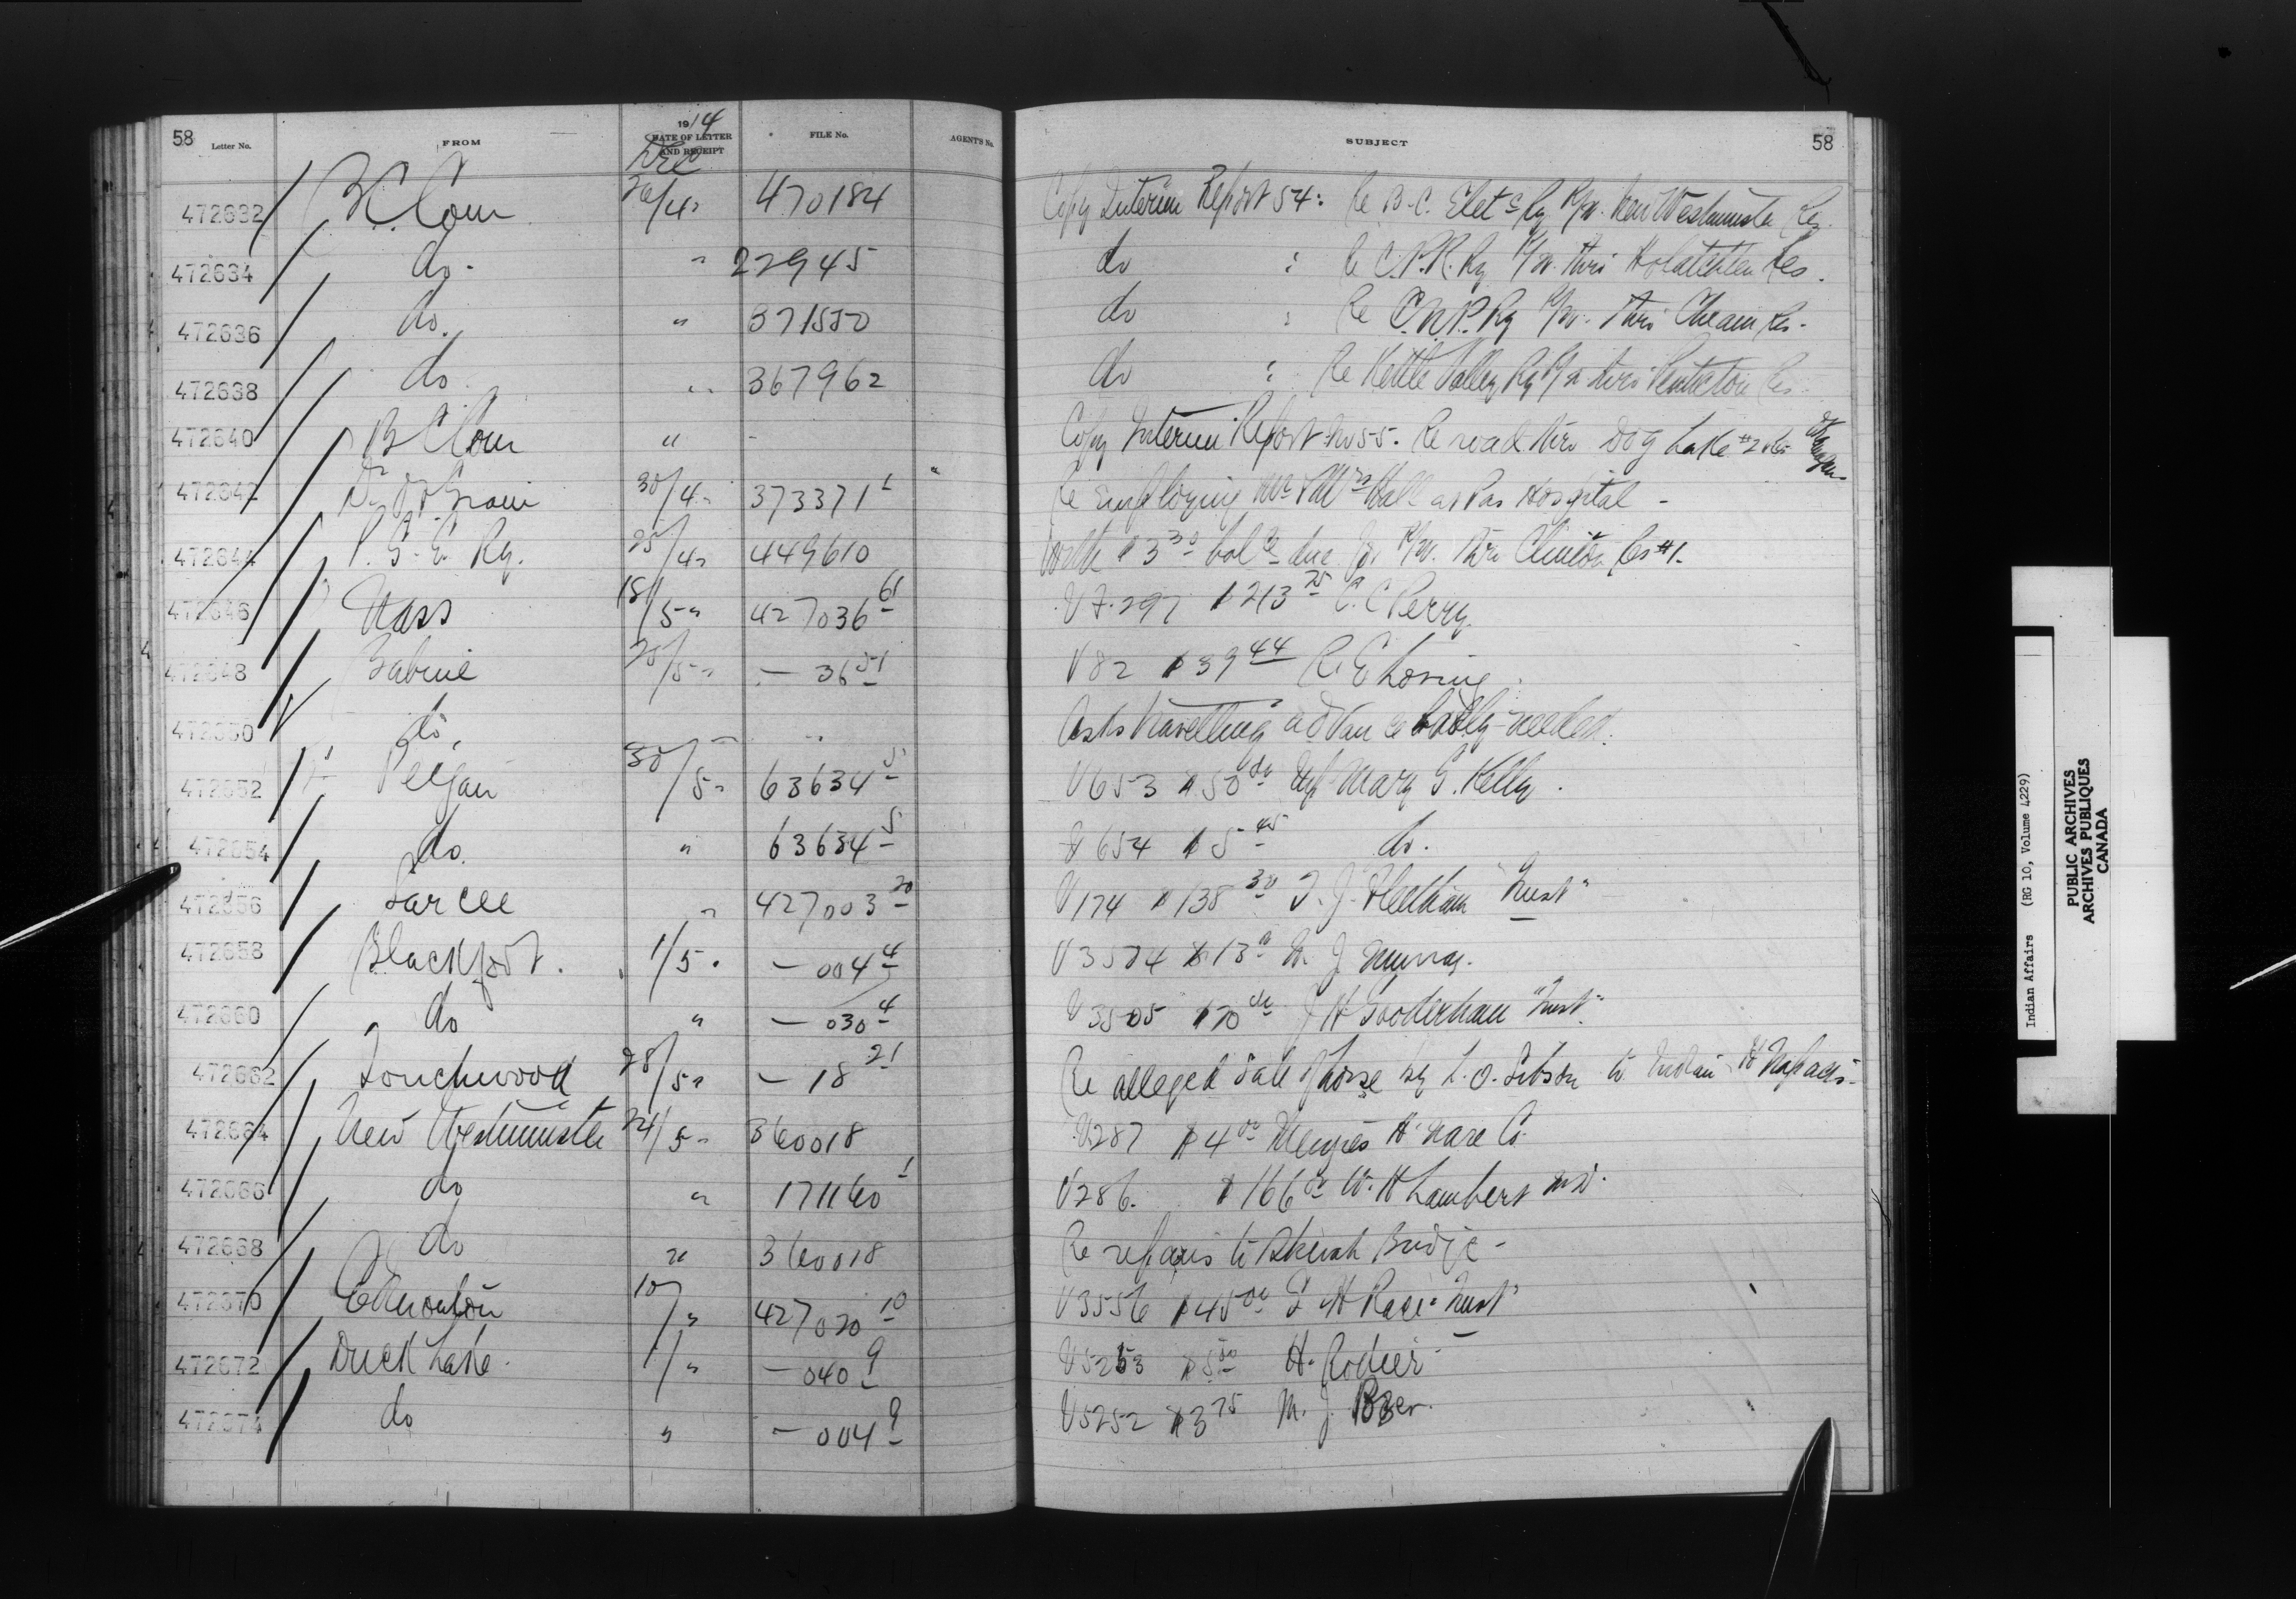 58 Letter No. FROM 1914 DATE OF LETTER AND RECEIPT FILE No. AGENT'S No. SUBJECT 58
Dec
472632 B.C. Com 26/4 " 470184 Copy Interim Report 54: Re B.C. Elect c Ry R/W. New Westminster Res.
472634 do " 22945 do : Re C.P.R. Ry R/W. thro Res.
472636 do. " 371550 do : Re C.N.P. Ry R/W. thro Cheam Res.
472638 do. " 367962 do : Re Kettle Valley Ry R/W thro Penticton Res.
472640 B C Com " - Copy Interim Report No 55. Re road thro Dog Lake #2 Res Okanagan
472642 Dr. Grain 30/4 " 373371 1 Re employing Mr & Mrs Hall at Pas Hospital -
472644 P. G. E. Ry. 25/4 " 449610 With $3 30 bal ce due for R/W. thro Clinton Res #1.
472646 Nass 18/5 " 427036 61 V 7.297 $213 25 C. C Perry.
472648 Babine 20/5 " — 36 51 V 82 $39 44 R. E Loring.
472650 do, " " Asks travelling advance badly needed.
472652 Peigan 30/5 " 63634 5 V 653 $50 00 Mary G. Kelly.
472654 do. " 63634 5 V 654 $5 45 do.
472656 Sarcee " 427003 20 V 174 $138 30 T. J. Fleetham "Trust"
472658 Blackfoot. 1/5 " — 004 4 V 3504 $13 J. Murray.
472660 do " — 030 4 V 3505 $70 00 J H Gooderham "Trust".
472662 Touchwood 28/5 " — 18 21 Re alleged sale of horse by L. O. Gibson to Indian
472664 New Westminster 24/5 " 360018 V 287 $4 00 Menzies H'ware Co.
472666 do " 171160 1 V 286. $166 00 W. H Lambert M.D.
472668 do " 360018 Re repairs to Bridge -
472670 Edmonton 10/ " 427020 10 V 3556 $45 00 Race "Trust"
472672 Duck Lake. 1/ " — 040 9 V 5253 $5 00 H. Rodier
472674 do " — 004 9 V 5252 $3 75 M. J.
Indian Affairs (RG 10, Volume 4229)
PUBLIC ARCHIVES
ARCHIVES PUBLIQUES
CANADA